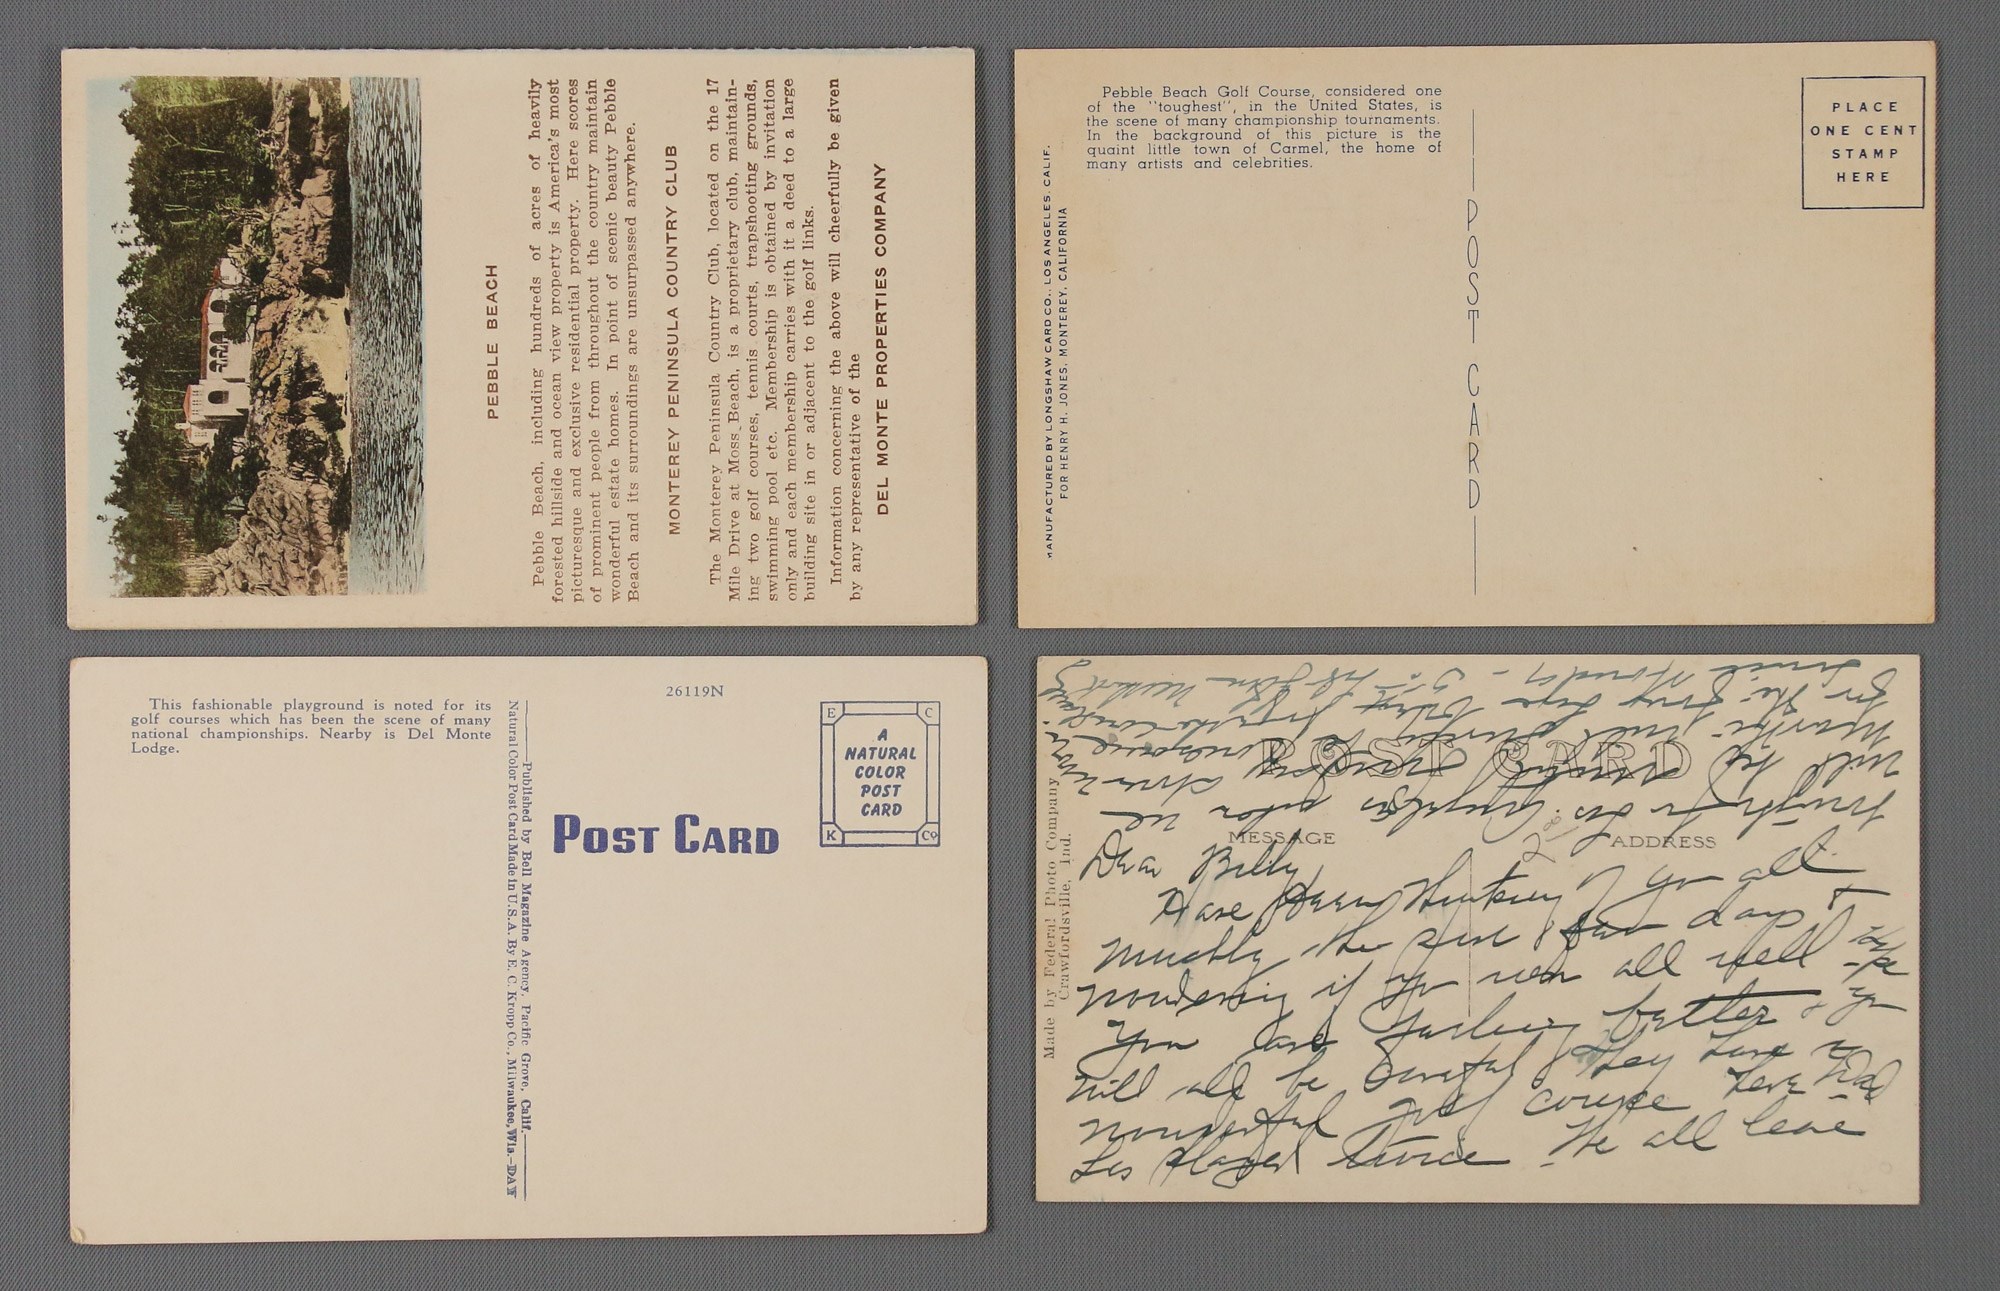 PEBBLE BEACH
Pebble Beach, including hundreds of acres of heavily
forested hillside and ocean view property is America's most
picturesque and exclusive residential property. Here scores
of prominent people from throughout the country maintain
wonderful estate homes. In point of scenic beauty Pebble
Beach and its surroundings are unsurpassed anywhere.
MONTEREY PENINSULA COUNTRY CLUB
The Monterey Peninsula Country Club, located on the 17
Mile Drive at Moss Beach, is a proprietary club, maintain-
ing two golf courses, tennis courts, trapshooting grounds,
swimming pool etc. Membership is obtained by invitation
only and each membership carries with it a deed to a large
building site in or adjacent to the golf links.
Information concerning the above will cheerfully be given
by any representative of the
DEL MONTE PROPERTIES COMPANY
Pebble Beach Golf Course, considered one
of the "toughest", in the United States, is
the scene of many championship tournaments.
In the background of this picture is the
quaint little town of Carmel, the home of
many artists and celebrities.
MANUFACTURED BY LONGSHAW CARD CO., LOS ANGELES, CALIF.
FOR HENRY H. JONES, MONTEREY, CALIFORNIA
POST CARD
PLACE
ONE CENT
STAMP
HERE
This fashionable playground is noted for its
golf courses which has been the scene of many
national championships. Nearby is Del Monte
Lodge.
Published by Bell Magazine Agency, Pacific Grove, Calif.
Natural Color Post Card Made in U.S.A. By E. C. Kropp Co., Milwaukee, Wis.-DAY
26119N
POST CARD
E C
A
NATURAL
COLOR
POST
CARD
K Co
POST CARD
MESSAGE
ADDRESS
Made by Federal Photo Company
Crawfordsville, Ind.
2.00
Dear Billy
Have been thinking of you all
the last few days &
wondering if you were all well
You are feeling better & you
will all be careful They have a
wonderful golf course here Dad
Les played twice - We all leave
tonight for Los Angeles